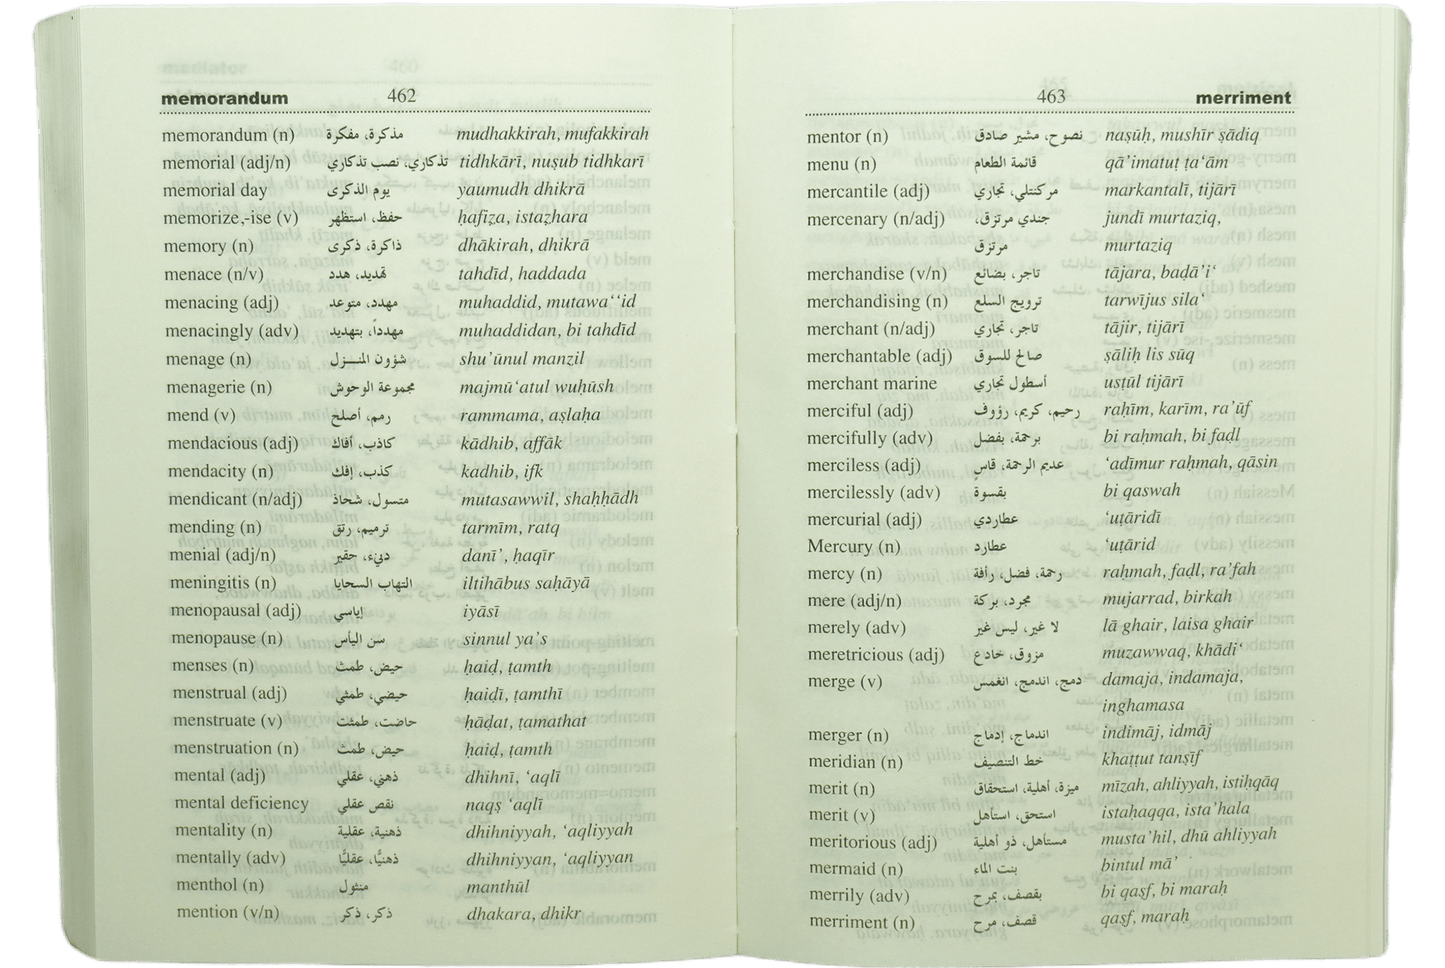 memorandum 462
memorandum (n) مذكرة، مفكرة mudhakkirah, mufakkirah
memorial (adj/n) تذكاري، نصب تذكاري tidhkārī, nuṣub tidhkarī
memorial day يوم الذكرى yaumudh dhikrā
memorize,-ise (v) حفظ، استظهر hafiẓa, istaẓhara
memory (n) ذاكرة، ذكرى dhākirah, dhikrā
menace (n/v) تهديد، هدد tahdīd, haddada
menacing (adj) مهدد، متوعد muhaddid, mutawa‘‘id
menacingly (adv) مهدداً، بتهديد muhaddidan, bi tahdīd
menage (n) شؤون المنـزل shu’ūnul manzil
menagerie (n) مجموعة الوحوش majmū‘atul wuḥūsh
mend (v) رمم، أصلح rammama, aṣlaḥa
mendacious (adj) كاذب، أفاك kādhib, affāk
mendacity (n) كذب، إفك kadhib, ifk
mendicant (n/adj) متسول، شحاذ mutasawwil, shaḥḥādh
mending (n) ترميم، رتق tarmīm, ratq
menial (adj/n) دنيء، حقير danī’, ḥaqīr
meningitis (n) التهاب السحايا iltihābus saḥāyā
menopausal (adj) إياسي iyāsī
menopause (n) سن اليأس sinnul ya’s
menses (n) حيض، طمث ḥaiḍ, ṭamth
menstrual (adj) حيضي، طمثي ḥaiḍī, ṭamthī
menstruate (v) حاضت، طمثت ḥāḍat, ṭamathat
menstruation (n) حيض، طمث ḥaiḍ, ṭamth
mental (adj) ذهني، عقلي dhihnī, ‘aqlī
mental deficiency نقص عقلي naqṣ ‘aqlī
mentality (n) ذهنية، عقلية dhihniyyah, ‘aqliyyah
mentally (adv) ذهنيًّا، عقليًّا dhihniyyan, ‘aqliyyan
menthol (n) منثول manthūl
mention (v/n) ذكر، ذكر dhakara, dhikr
463 merriment
mentor (n) نصوح، مشير صادق naṣūḥ, mushīr ṣādiq
menu (n) قائمة الطعام qā’imatuṭ ṭa‘ām
mercantile (adj) مركنتلي، تجاري markantalī, tijārī
mercenary (n/adj) جندي مرتزق، jundī murtaziq,
مرتزق murtaziq
merchandise (v/n) تاجر، بضائع tājara, baḍā’i‘
merchandising (n) ترويج السلع tarwījus sila‘
merchant (n/adj) تاجر، تجاري tājir, tijārī
merchantable (adj) صالح للسوق ṣāliḥ lis sūq
merchant marine أسطول تجاري usṭūl tijārī
merciful (adj) رحيم، كريم، رؤوف raḥīm, karīm, ra’ūf
mercifully (adv) برحمة، بفضل bi raḥmah, bi faḍl
merciless (adj) عديم الرحمة، قاسٍ ‘adīmur raḥmah, qāsin
mercilessly (adv) بقسوة bi qaswah
mercurial (adj) عطاردي ‘uṭāridī
Mercury (n) عطارد ‘uṭārid
mercy (n) رحمة، فضل، رأفة raḥmah, faḍl, ra’fah
mere (adj/n) مجرد، بركة mujarrad, birkah
merely (adv) لا غير، ليس غير lā ghair, laisa ghair
meretricious (adj) مزوق، خادع muzawwaq, khādi‘
merge (v) دمج، اندمج، انغمس damaja, indamaja,
inghamasa
merger (n) اندماج، إدماج indimāj, idmāj
meridian (n) خط التنصيف khaṭṭut tanṣīf
merit (n) ميزة، أهلية، استحقاق mīzah, ahliyyah, istiḥqāq
merit (v) استحق، استأهل istaḥaqqa, ista’hala
meritorious (adj) مستأهل، ذو أهلية musta’hil, dhū ahliyyah
mermaid (n) بنت الماء bintul mā’
merrily (adv) بقصف، بمرح bi qaṣf, bi marah
merriment (n) قصف، مرح qaṣf, maraḥ